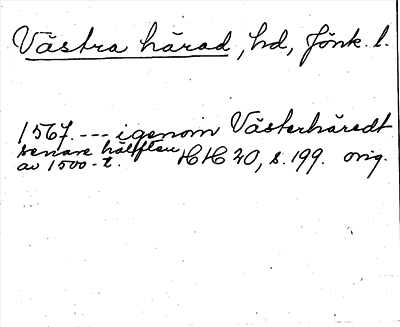 Västra härad, hd, Jönk. l.
1567. --- igenom Västerhäredt
senare hälften HH 20, s. 199. orig.
av 1500-t.